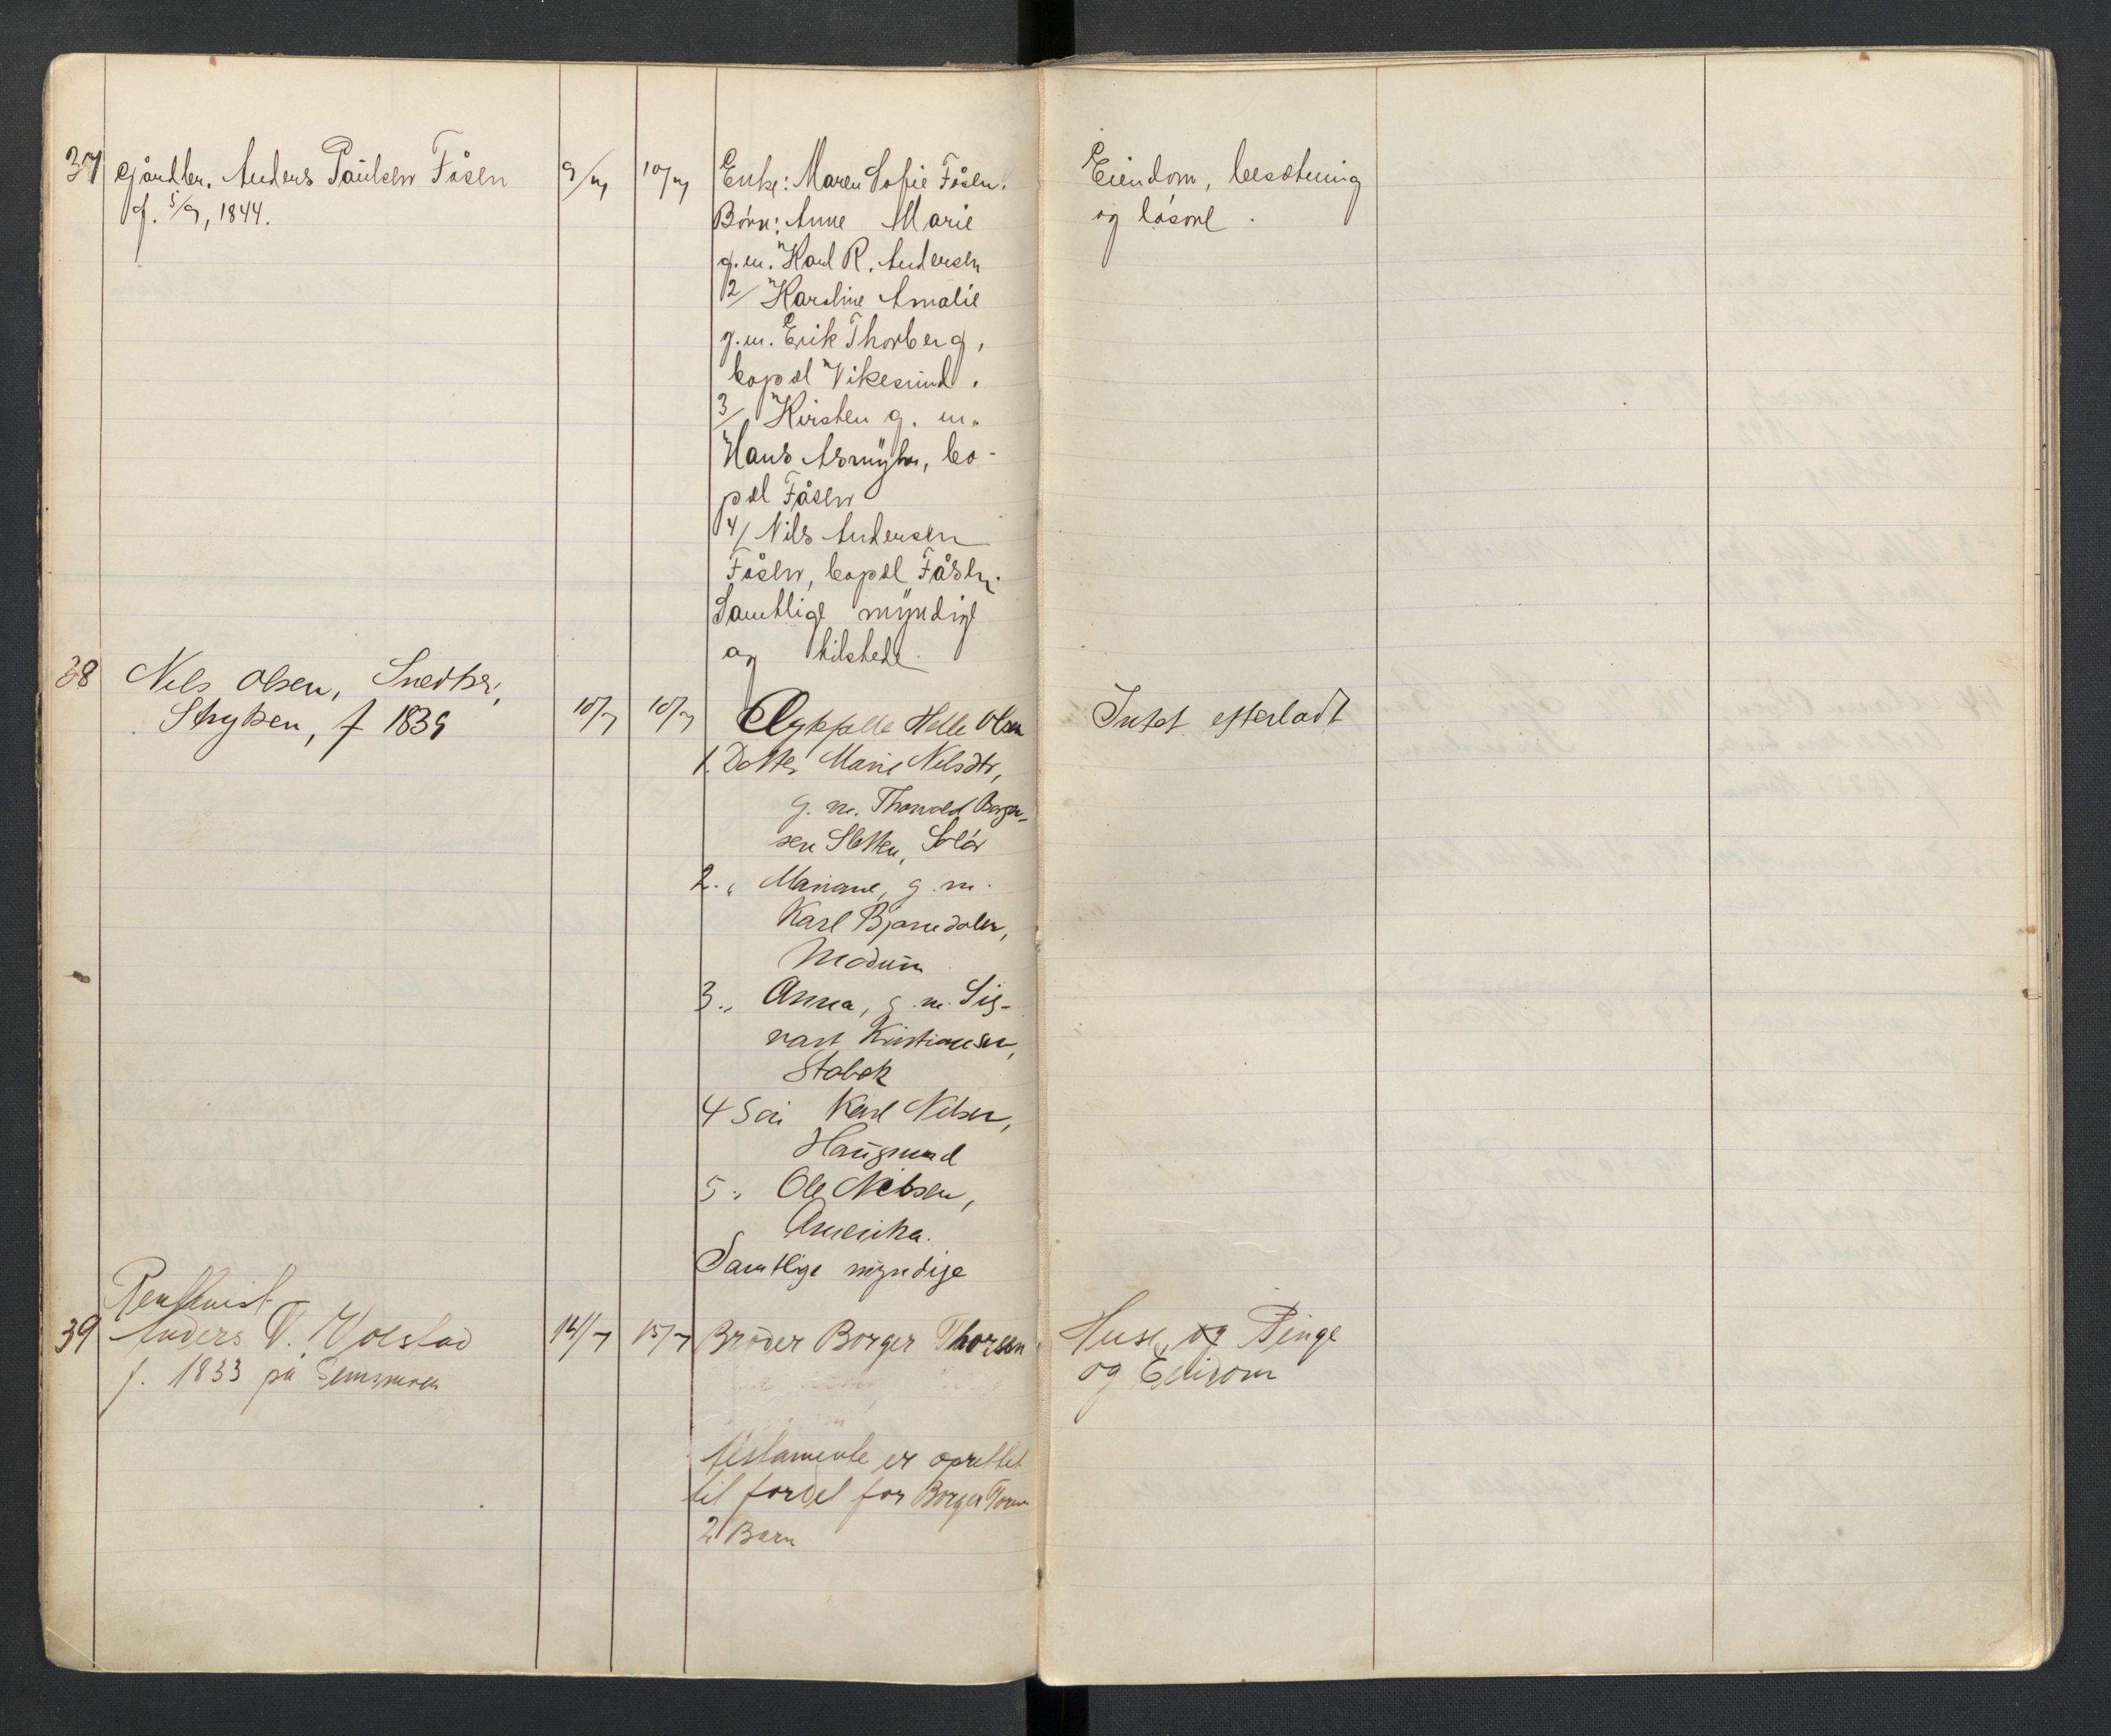 37 Gårdbr. Anders Paulsen Fåsen
f. 5/9, 1844.
9/7 10/7
Enke: Maren Sofie Fåsen.
Børn: Anne Marie
g.m. Karl R. Andersen
2/ Karoline Amalie
g.m. Erik Thorberg,
bopæl Vikesund.
3/ Kirsten g. m.
Hans Asmyhr, bo-
pæl Fåsen
4/ Nils Andersen
Fåsen, bopæl Fåsen.
Samtlige myndige
og tilstede.
Eiendom, besætning
og løsøre.
38 Nels Olsen, Snedker,
Stryken, f 1839
10/7 10/7
Ægtefelle Helle Olsen
1. Datter Marie Nelsdtr,
g. m. Thorvald Borger-
sen Sletten, Solør
2. " Mariane, g. m.
Karl Bjørndalen,
Modum
3. " Anna, g. m. Sig-
vart Kristiansen,
Stabek
4 Søn Karl Nelsen,
Haugsund
5 " Ole Nelsen,
Amerika.
Samtlige myndige
Intet efterladt
Rentenist
39 Anders T. Volstad
f. 1833 på
14/7 15/7
Broder Borger Thorsen
testamente er oprettet
til fordel for Borger Torsen
2 Barn
Huse, og Penge
og Eiendom